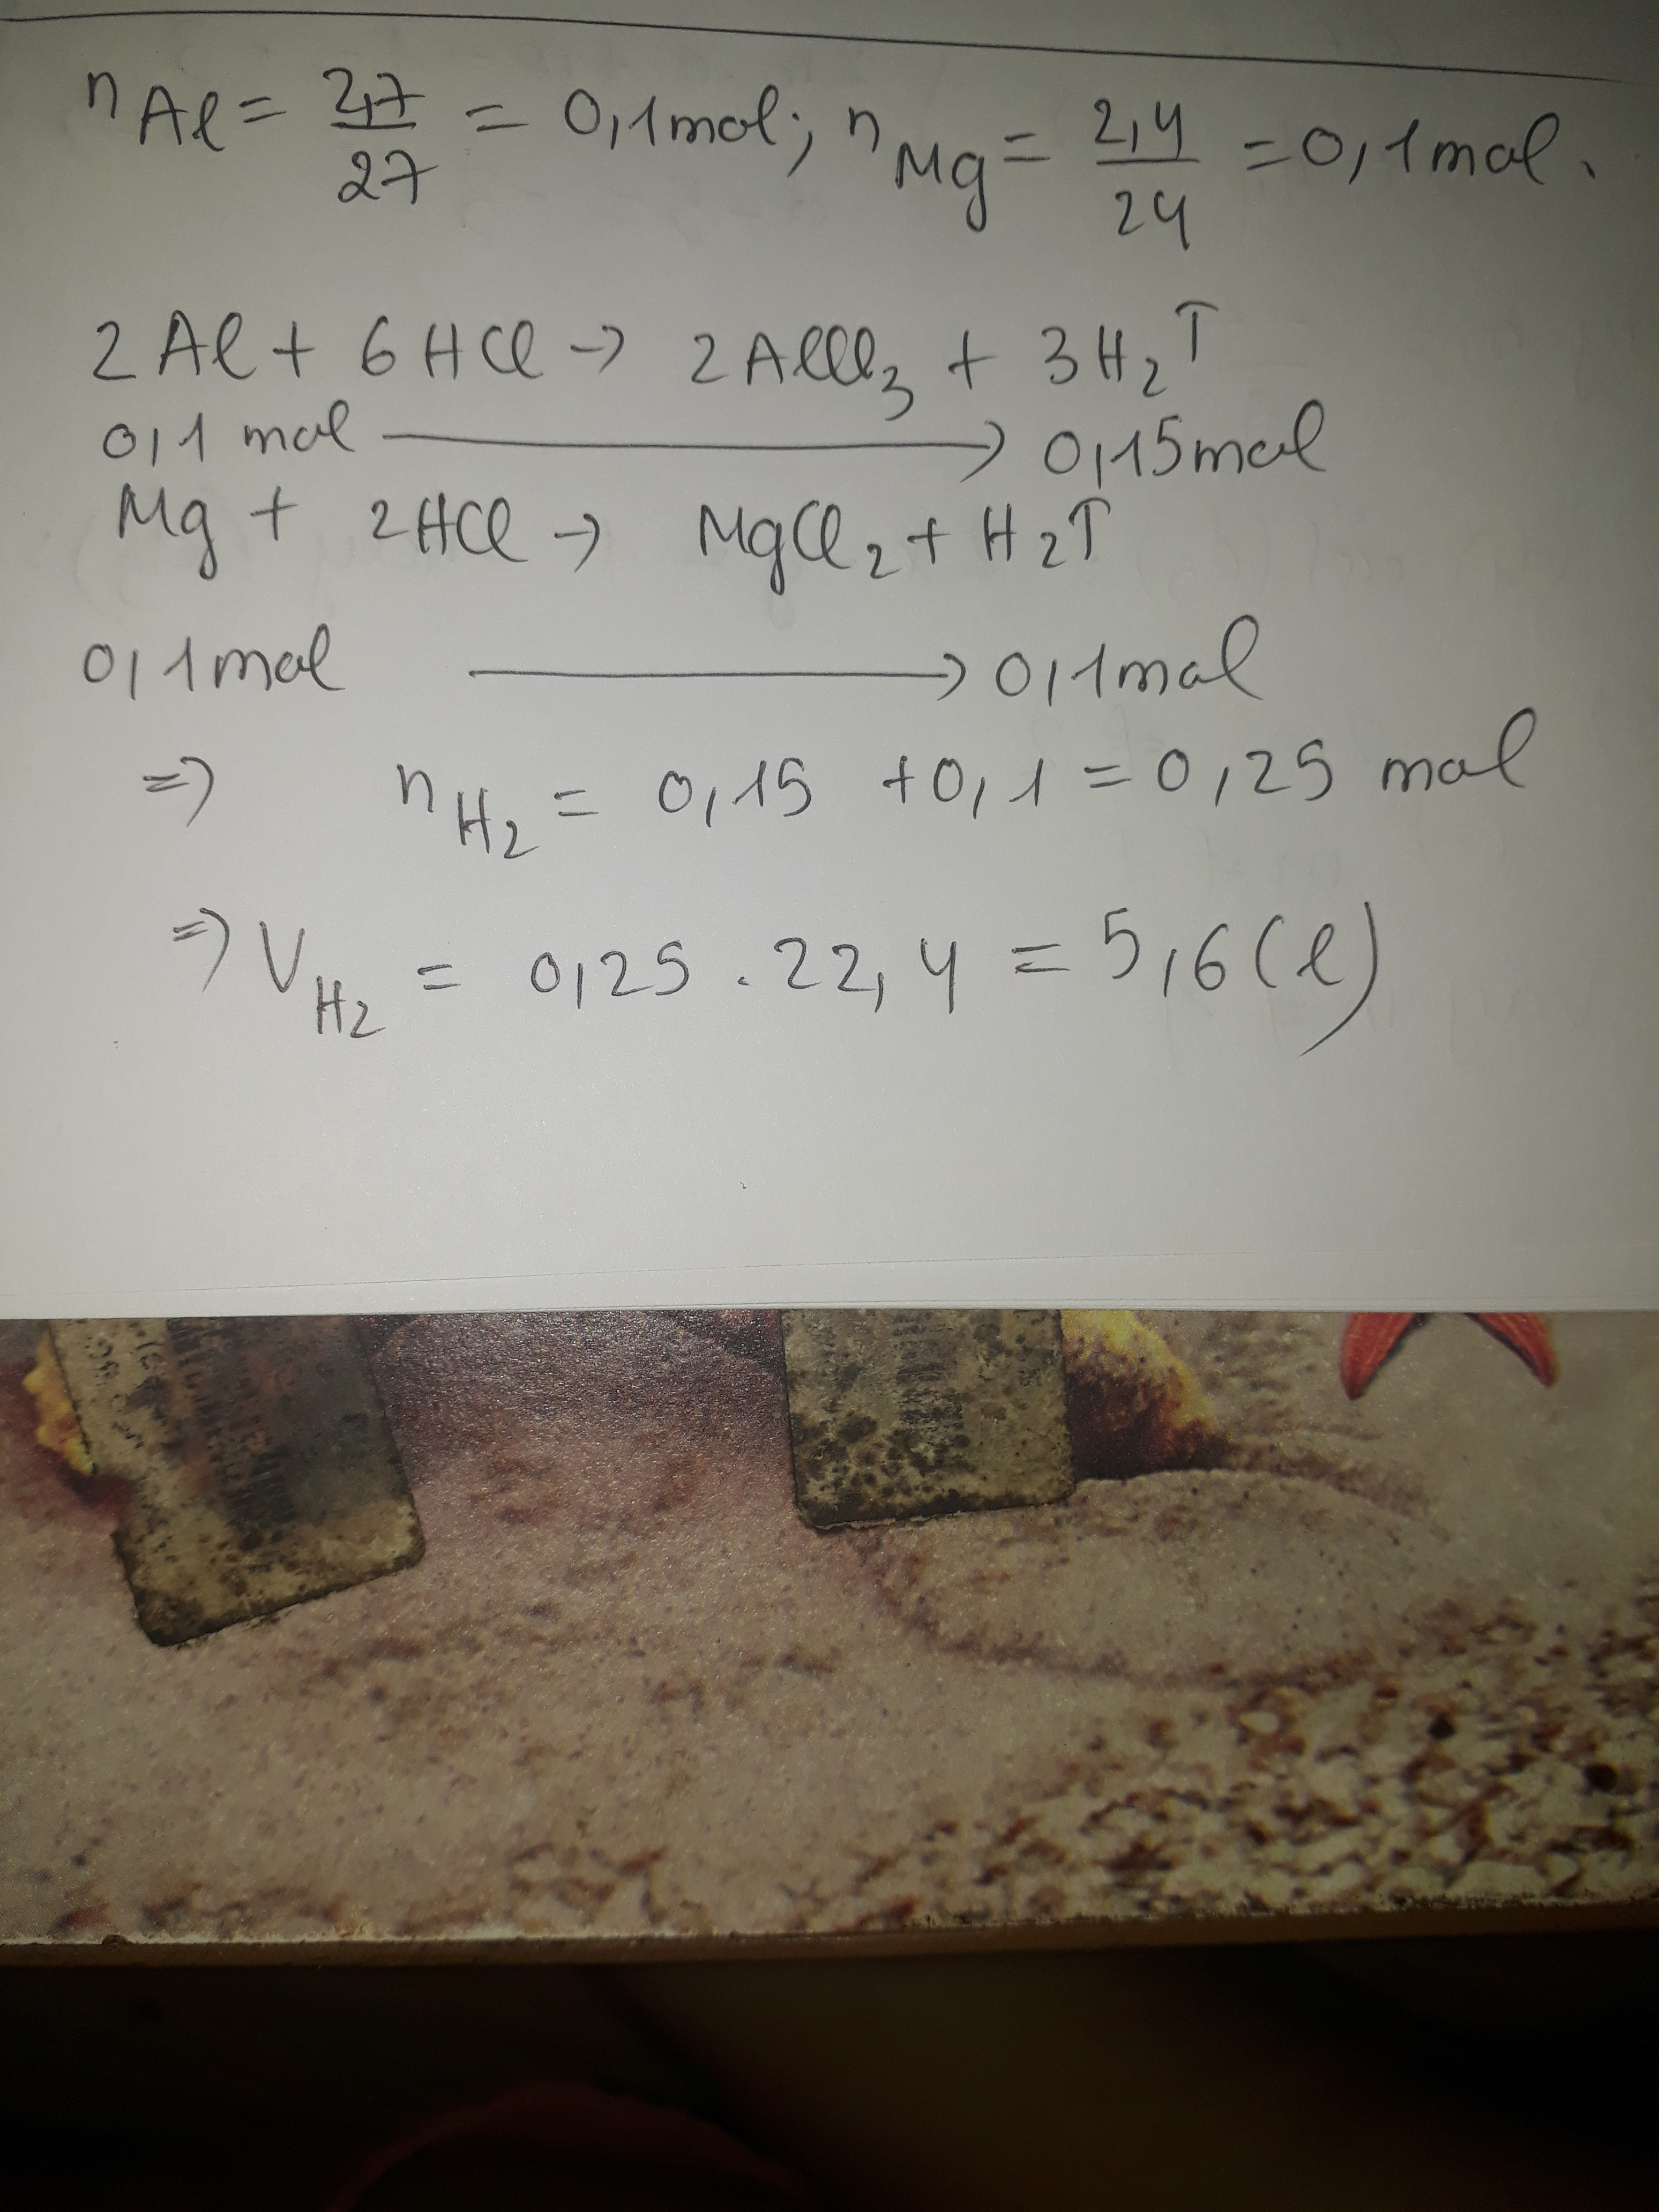 nAl = 2,7/27 = 0,1mol; nMg = 2,4/24 = 0,1mol.
2Al + 6HCl → 2AlCl3 + 3H2↑
0,1 mol → 0,15mol
Mg + 2HCl → MgCl2 + H2↑
0,1mol → 0,1mol
=> nH2 = 0,15 + 0,1 = 0,25 mol
=> VH2 = 0,25 . 22,4 = 5,6(l)